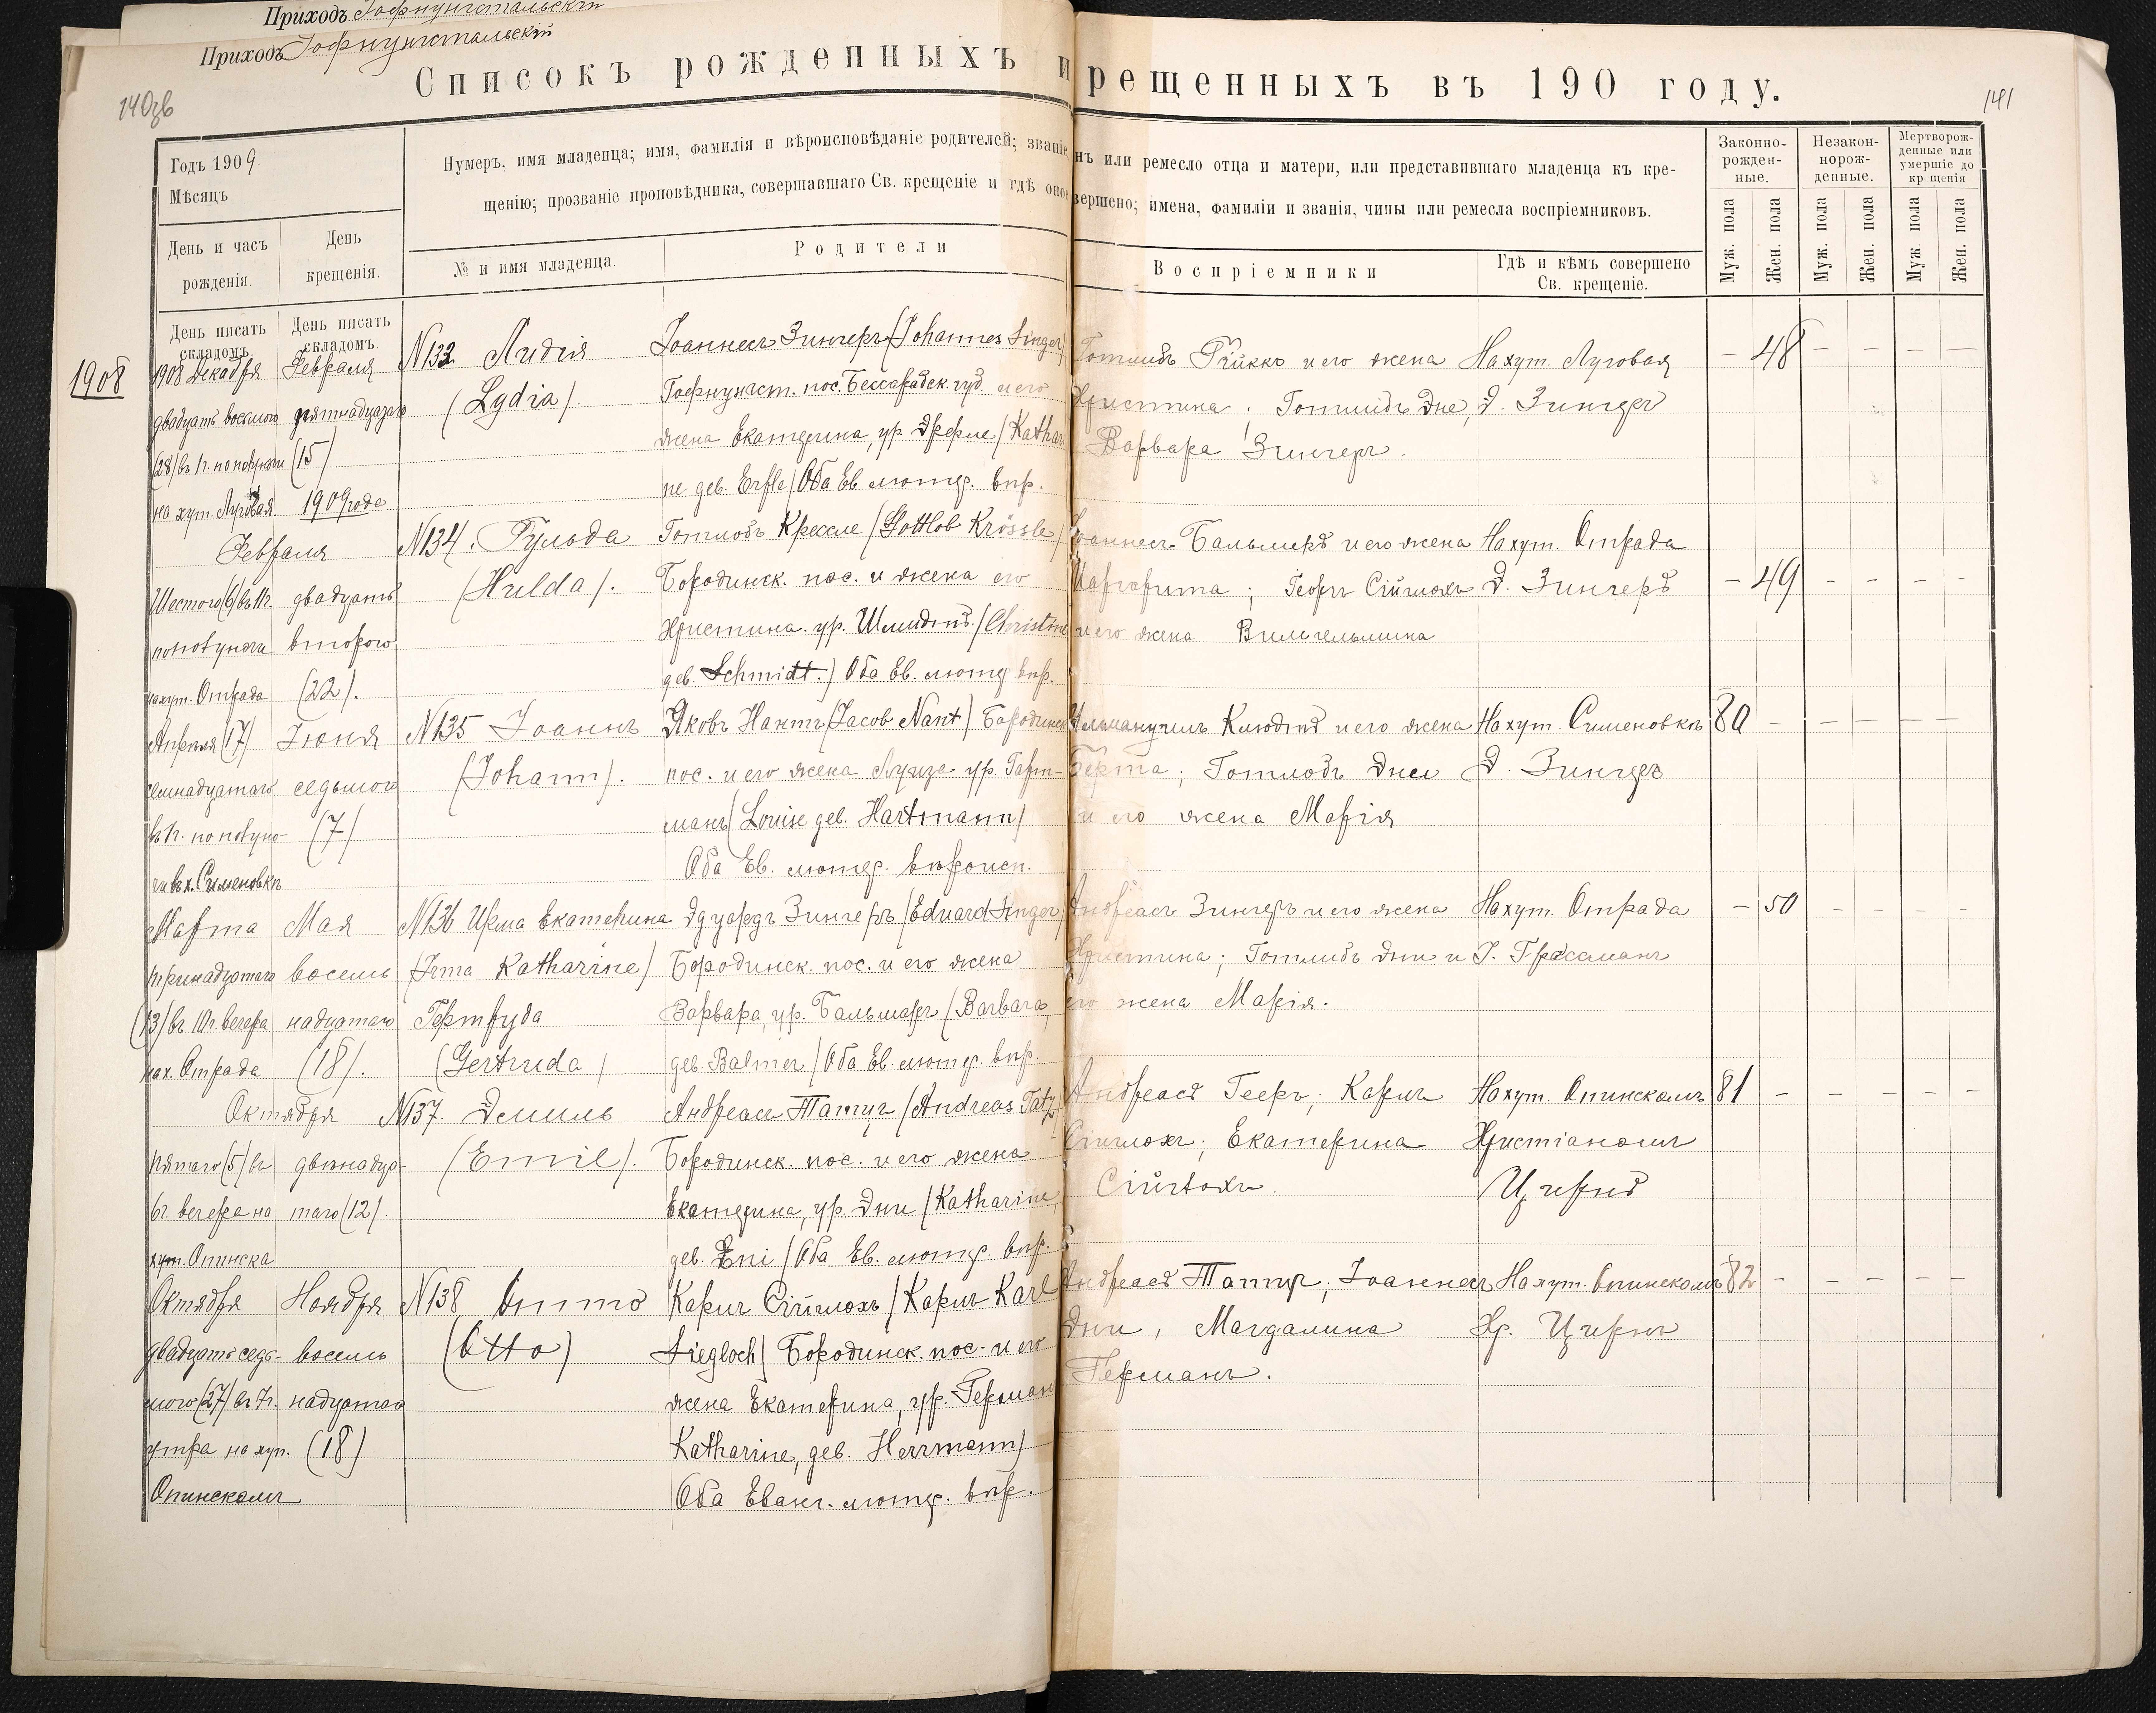 Приходъ Гофнунгстальскiй
Приходъ Гофнунгстальскiй
Списокъ рожденныхъ и
рещенныхъ въ 190 году.
140зв
141
Годъ 1909.
Мѣсяцъ
Нумеръ, имя младенца; имя, фамилія и вѣроисповѣданіе родителей; званіе,
щенію; прозваніе проповѣдника, совершавшаго Св. крещеніе и гдѣ оное
нъ или ремесло отца и матери, или представившаго младенца къ кре-
вершено; имена, фамиліи и званія, чины или ремесла воспріемниковъ.
Законно-
рожден-
ные.
Незакон-
норож-
денные.
Мертворож-
денные или
умершіе до
кр щенія
День и часъ
рожденія.
День
крещенія.
№ и имя младенца.
Родители
Воспріемники
Гдѣ и кѣмъ совершено
Св. крещеніе.
Муж. пола
Жен. пола
Муж. пола
Жен. пола
Муж. пола
Жен. пола
День писать
складомъ.
День писать
складомъ.
1908
1908 Декабря
двадцать восьмого
(28) въ 1 г. по полуночи
на хут. Луговая
Февраля
пятнадцатаго
(15)
1909 года
N133 Лидія
(Lydia).
Іоаннесъ Зингеръ (Johannes Singer)
Гофнунгст. пос. Бессарабск. губ. и его
жена Екатерина, ур. Эрфле (Kathari
ne дев. Erfle) Оба Ев. лютер. вѣр.
Готлибъ и его жена
Христина; Готлибъ Эне,
Варвара Зингеръ.
На хут. Луговая
Д. Зингеръ
– 48 – – – –
Февраля
Шестого (6) въ 11 г.
пополуночи
на хут. Отрада
двадцать
второго
(22).
N134. Гульда
(Hulda).
Готлобъ Кресле (Gottlob Krössle)
Бородинск. пос. и жена его
Христина. ур. Шмидтъ. (Christine
дев. Schmidt.) Оба Ев. лютер. вѣр.
Іоаннесъ Бальмеръ и его жена
Маргарита; Георгъ Сійглохъ
и его жена Вильгельмина
На хут. Отрада
Д. Зингеръ
– 49 – – – –
Апрѣля (17)
семнадцатаго
въ 1 г. по полуно-
чи въ х. Сименовкѣ
Іюня
седьмого
(7)
N135 Іоаннъ
(Johann).
Яковъ Нантъ (Jacob Nant) Бородинск
пос. и его жена Луиза ур. Гарт-
манъ (Louise дев. Hartmann)
Оба Ев. лютер. вѣроисп.
Эммануилъ Клюдтъ и его жена
Берта; Готлобъ Эни
и его жена Марія
На хут. Сименовкѣ
Д. Зингеръ
80 – – – – –
Марта
тринадцатаго
(13) въ 10 г. вечера
на х. Отрада
Мая
восемь
надцатаго
(18).
N136 Ирма Екатерина
(Irma Katharine)
Гертруда
(Gertruda)
Эдуардъ Зингеръ (Eduard Singer)
Бородинск. пос. и его жена
Варвара, ур. Бальмеръ (Barbara,
дев. Balmer) Оба Ев. лютер. вѣр.
Андреасъ Зингеръ и его жена
Христина; Готлибъ Эни и
его жена Марія.
На хут. Отрада
I. Грассманъ
– 50 – – – –
Октября
пятаго (5) въ
6 г. вечера на
хут. Опинска
двѣнадца-
таго (12).
N137. Эмиль
(Emil).
Андреасъ Татцъ (Andreas Tatz
Бородинск. пос. и его жена
Екатерина, ур. Эни (Katharine,
дев. Eni) Оба Ев. лютер. вѣр.
Андреасъ Гееръ; Карлъ
Сійглохъ; Екатерина
Сійглохъ.
На хут. Опинскомъ
Христіаномъ
Цигеръ
81 – – – – –
Октября
двадцать седь-
мого (27) въ 7 г.
утра на хут.
Опинскомъ
Ноября
восемь
надцатаго
(18)
N138 Отто
(Otto)
Карлъ Сійглохъ (Карлъ Karl
Siegloch) Бородинск. пос. и его
жена Екатерина, ур. Герман
Katharine, дев. Herrmann)
Оба Еванг. лютер. вѣр.
Андреасъ Татцъ; Іоаннесъ
Эни, Магдалина
Германъ.
На хут. Опинскомъ
Хр. Цигеръ
82 – – – – –